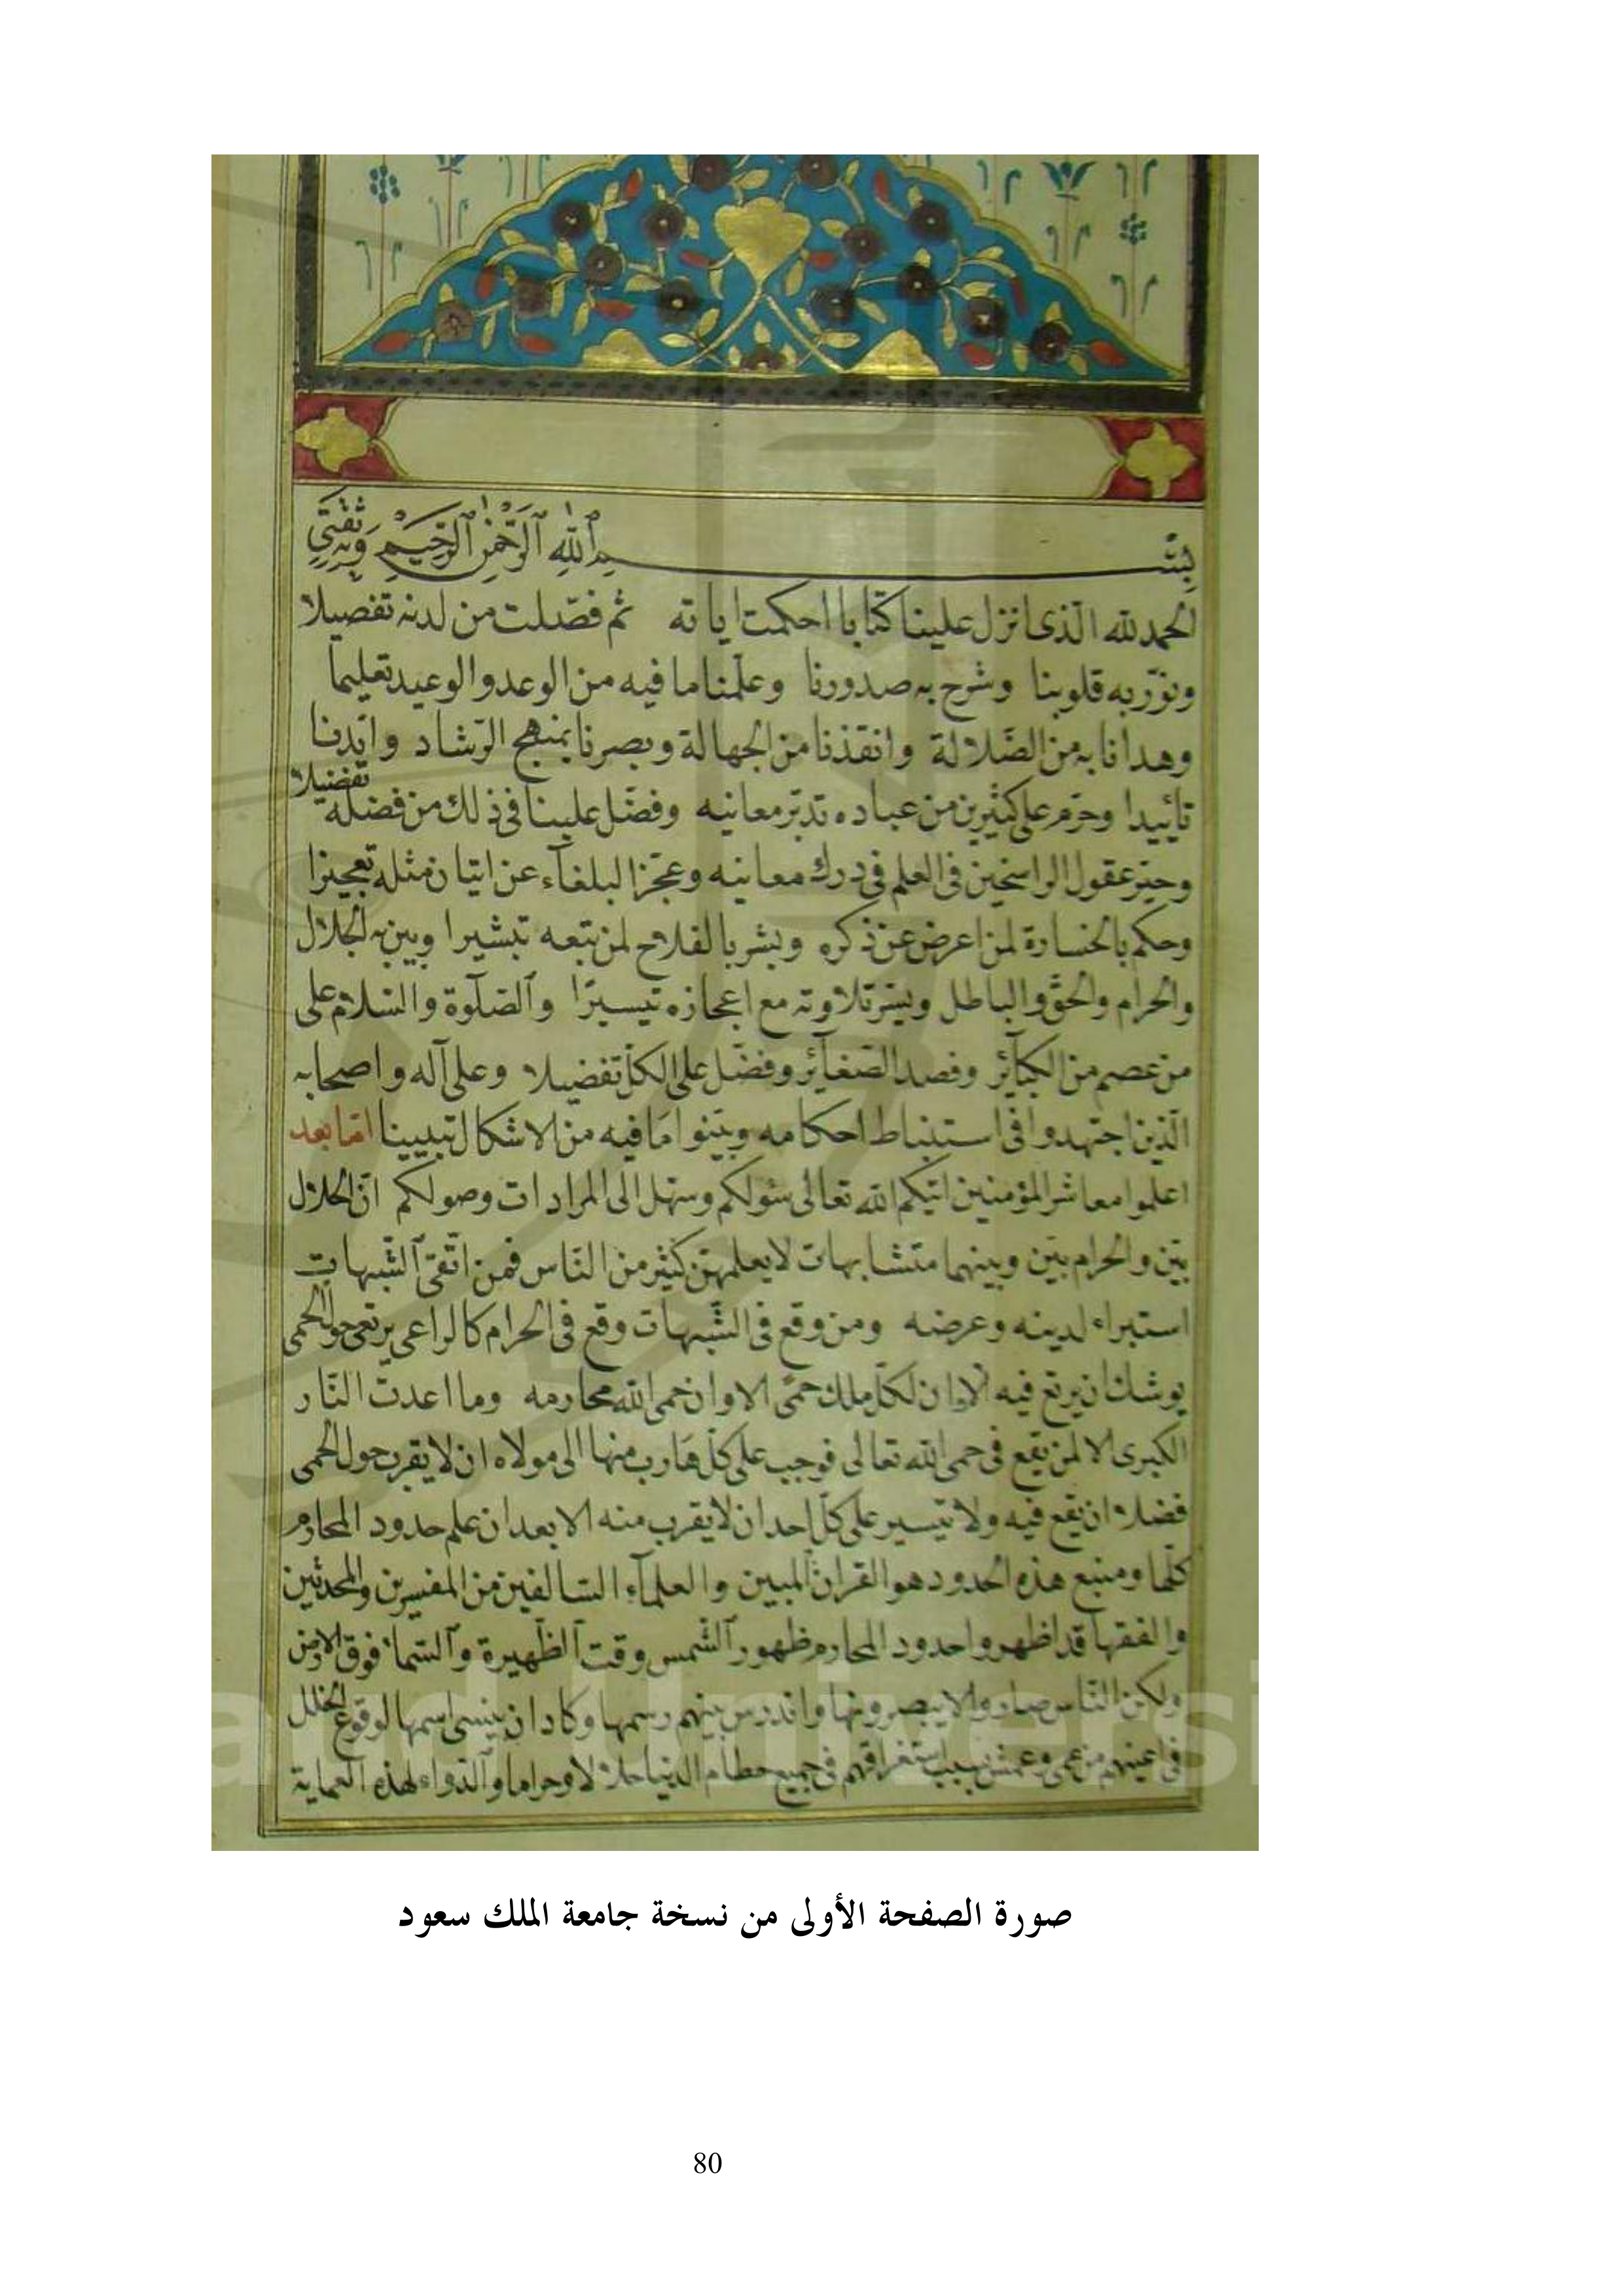 بسم الله الرحمن الرحيم وبه ثقتي
الحمد لله الذى انزل علينا كتابا احكمت اياته ثم فصّلت من لدنه تفصيلا
ونوّر به قلوبنا وشرح به صدورنا وعلّمنا ما فيه من الوعد والوعيد تعليما
وهدانا به من الضّلالة وانقذنا من الجهالة وبصرنا بمنهج الرّشاد وايّدنا
تأييدا وحرّم على كثيرين من عباده تدبّر معانيه وفضّل علينا فى ذلك من فضله تفضيلا
وحيّر عقول الراسخين فى العلم فى درك معانيه وعجّز البلغآء عن اتيان مثله تعجيزا
وحكم بالخسارة لمن اعرض عن ذكره وبشر بالفلاح لمن تبعه تبشيرا وبين به الحلال
والحرام والحقّ والباطل ويسّر تلاوته مع اعجازه تيسيرًا والصّلوة والسّلام على
من عصم من الكبآئر وفصد الصّغآئر وفضّل على الكلّ تفضيلا وعلى آله واصحابه
الّذين اجتهدوا فى استنباط احكامه وبيّنوا ما فيه من الاشكال تبيينا امّا بعد
اعلموا معاشر المؤمنين اتيكم الله تعالى سئولكم وسهّل الى المرادات وصولكم انّ الحلال
بيّن والحرام بيّن وبينهما متشابهات لا يعلمهنّ كثير من النّاس فمن اتّقى الشّبهات
استبراء لدينه وعرضه ومن وقع فى الشّبهات وقع فى الحرام كالراعى يرتعى حول الحمى
يوشك ان يرتع فيه الا وان لكلّ ملك حمًى الا وان حمى الله محارمه وما اعدت النّار
الكبرى الا لمن يقع فى حمى الله تعالى فوجب على كلّ هارب منها الى مولاه ان لا يقرب حول الحمى
فضلا ان يقع فيه ولا تيسير على كلّ احد ان لا يقرب منه الا بعد ان علم حدود المحارم
كلّها ومنبع هذه الحدود هو القرآن المبين والعلمآء السّالفين من المفسرين والمحدثين
والفقها قد اظهروا حدود المحارم ظهور الشّمس وقت الظّهيرة والسّمآء فوق الارض
ولكن النّاس صاروا لا يبصرونها واندرس بينهم رسمها وكاد ان ينسى اسمها لوقوع الخلل
فى اعينهم من عمى وعمش بسبب استغراقهم فى جميع حطام الدنيا حلالا وحراما والدّواء لهذه العماية
صورة الصفحة الأولى من نسخة جامعة الملك سعود
80